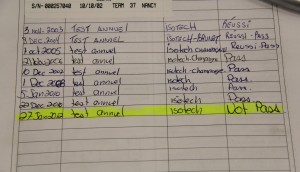 S/N-000257040 10/10/02 TEAM 37 NANCY
3 Nov. 2003 TEST ANNUEL ISOTECH RÉUSSI
8 Dec 2004 TEST ANNUEL ISOTECH - RÉUSSI - PASS
2005 test annuel Isotech Champagne Réussi - Pass
2006 test annuel Isotech Champagne Pass
10 Dec 2007 test annuel Isotech - Champagne Pass
1 Dec 2008 test annuel Isotech Pass
5 Jan 2010 test annuel Isotech Pass
20 Dec 2010 test annuel isotech Pass
27 Jan 2012 test annuel isotech Not Pass